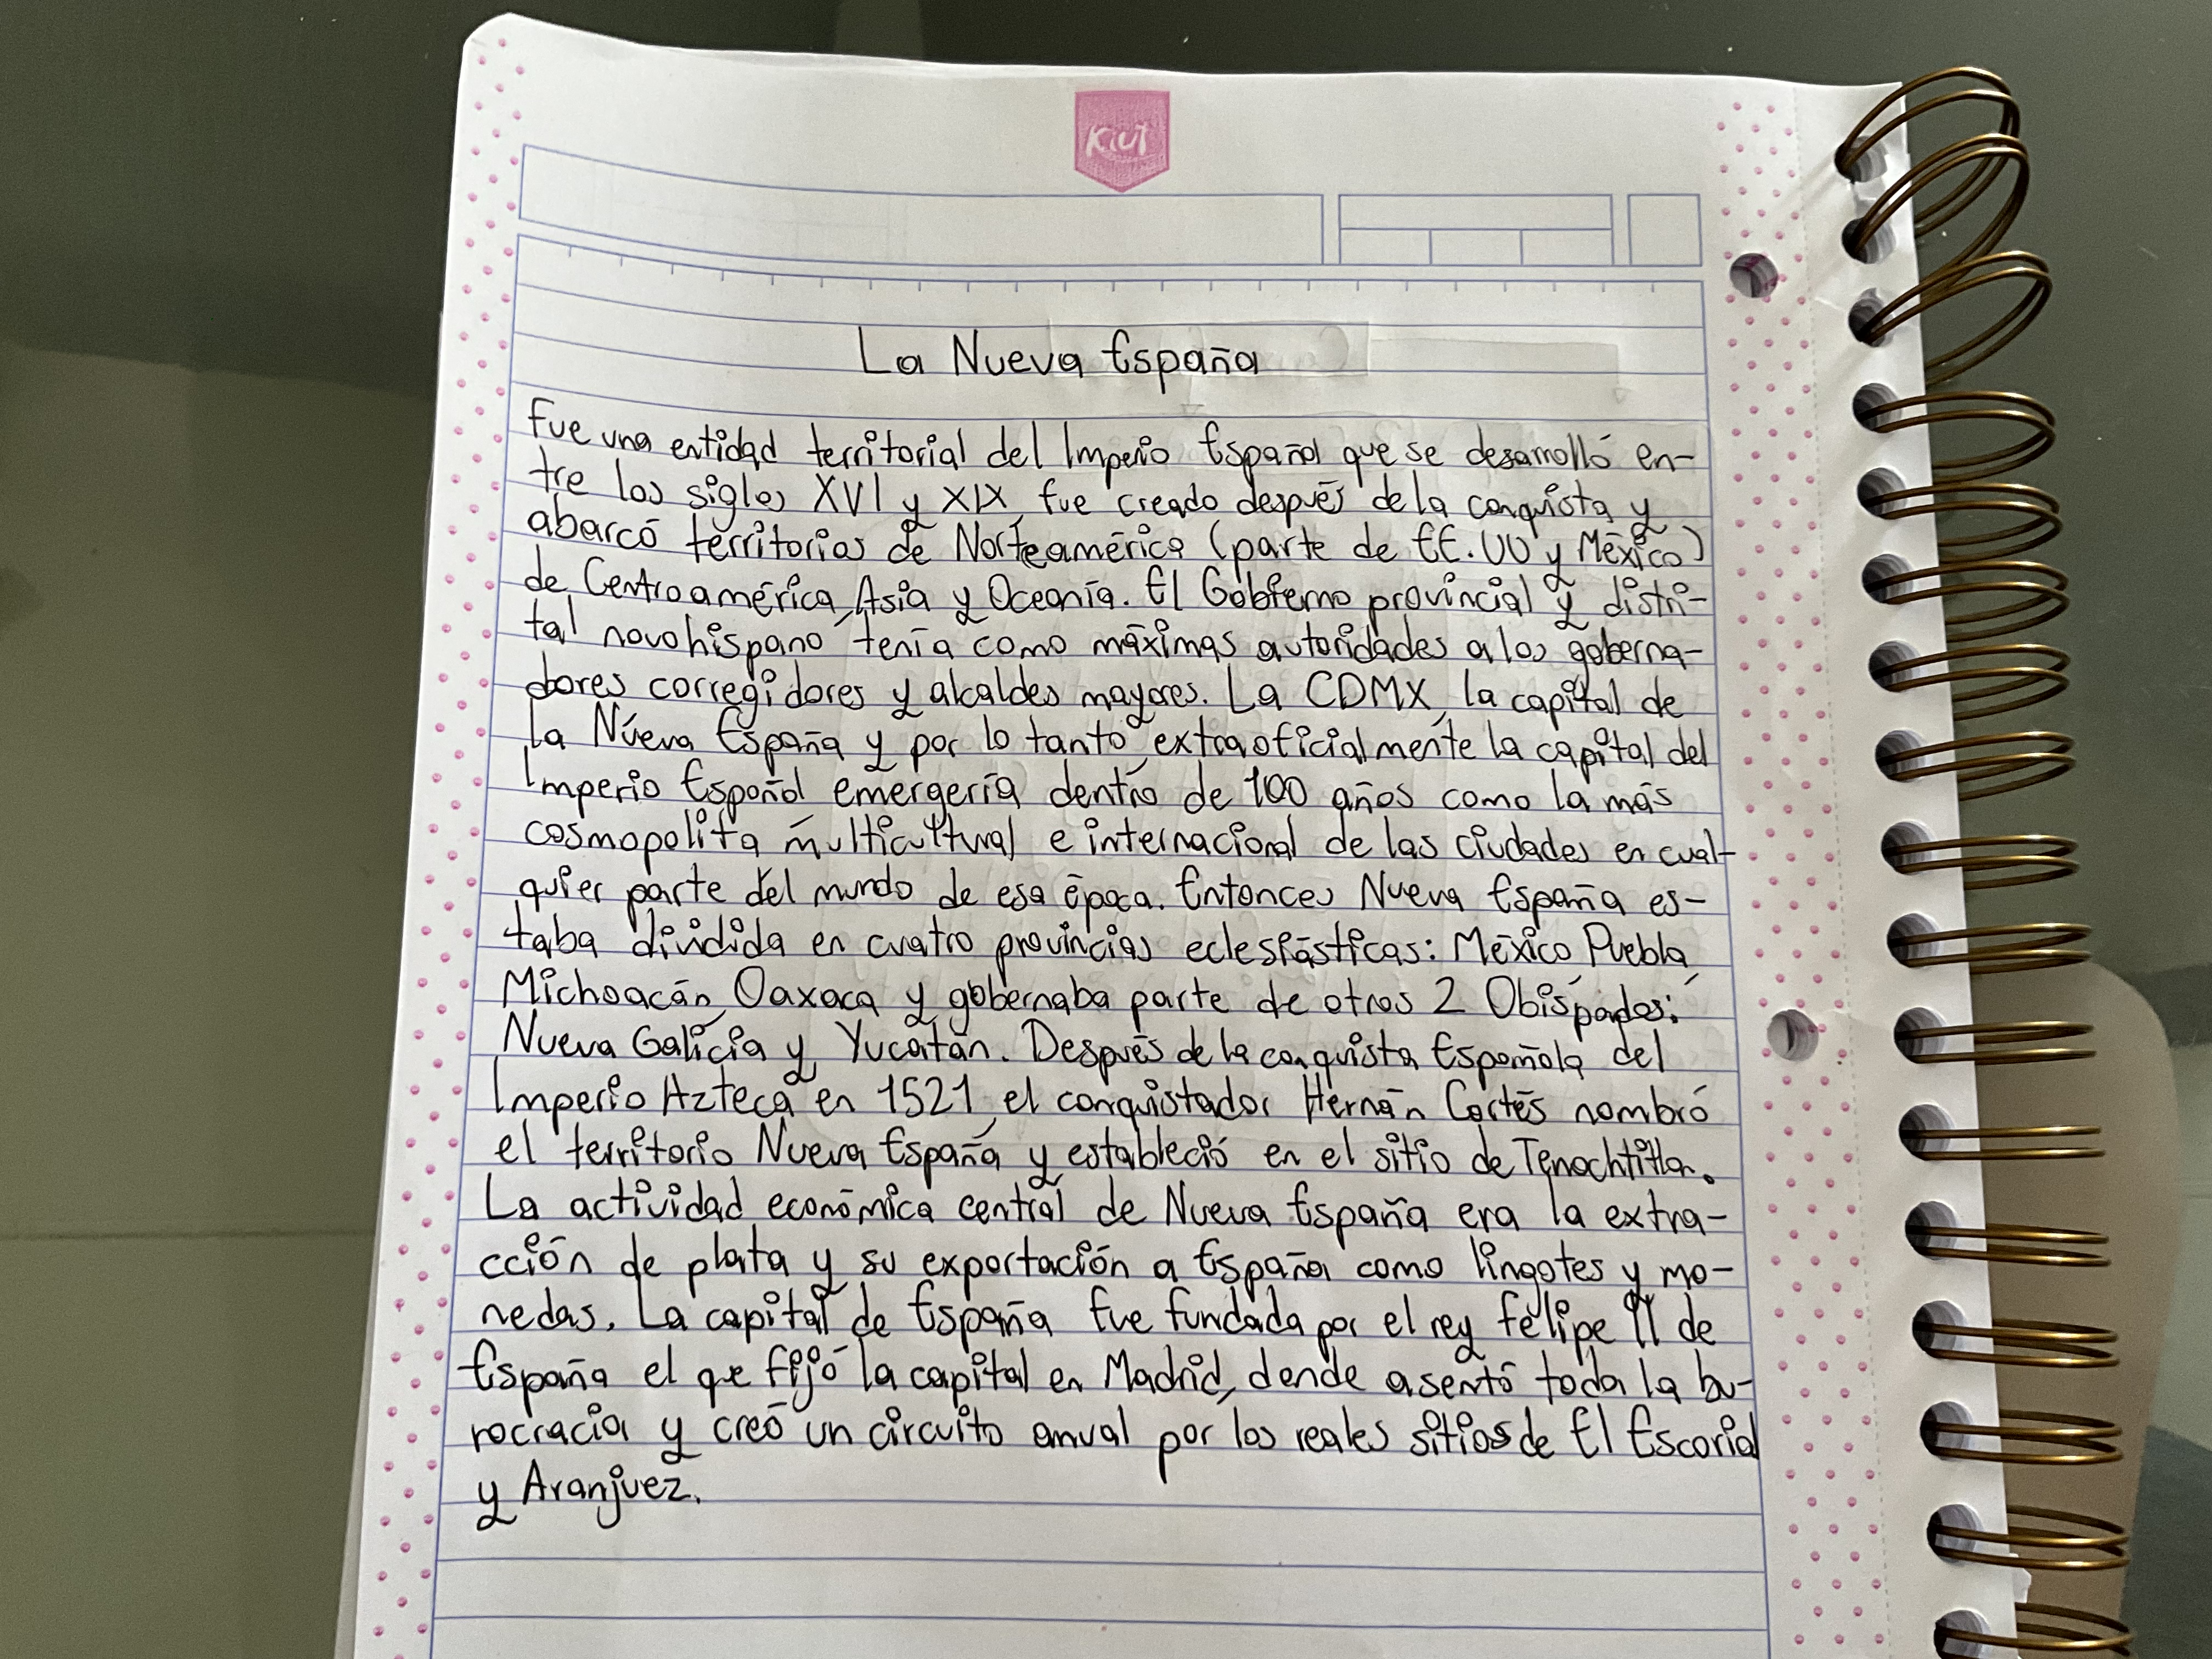 Kiut
La Nueva España
Fue una entidad territorial del Imperio Español que se desarrolló en-
tre los siglos XVI y XIX, fue creado después de la conquista y
abarcó territorios de Norteamérica (parte de EE.UU y México)
de Centroamérica, Asia y Oceanía. El Gobierno provincial y distri-
tal novohispano tenía como máximas autoridades a los goberna-
dores corregidores y alcaldes mayores. La CDMX, la capital de
la Nueva España y por lo tanto extraoficialmente la capital del
Imperio Español emergería dentro de 100 años como la más
cosmopolita, multicultural e internacional de las ciudades en cual-
quier parte del mundo de esa época. Entonces Nueva España es-
taba dividida en cuatro provincias eclesiásticas: México Puebla,
Michoacán, Oaxaca y gobernaba parte de otros 2 Obispados:
Nueva Galicia y Yucatán. Después de la conquista Española del
Imperio Azteca en 1521, el conquistador Hernán Cortés nombró
el territorio Nueva España y estableció en el sitio de Tenochtitlan.
La actividad económica central de Nueva España era la extra-
cción de plata y su exportación a España como lingotes y mo-
nedas. La capital de España fue fundada por el rey Felipe II de
España el que fijó la capital en Madrid, donde asentó toda la bu-
rocracia y creó un circuito anual por los reales sitios de El Escorial
y Aranjuez.